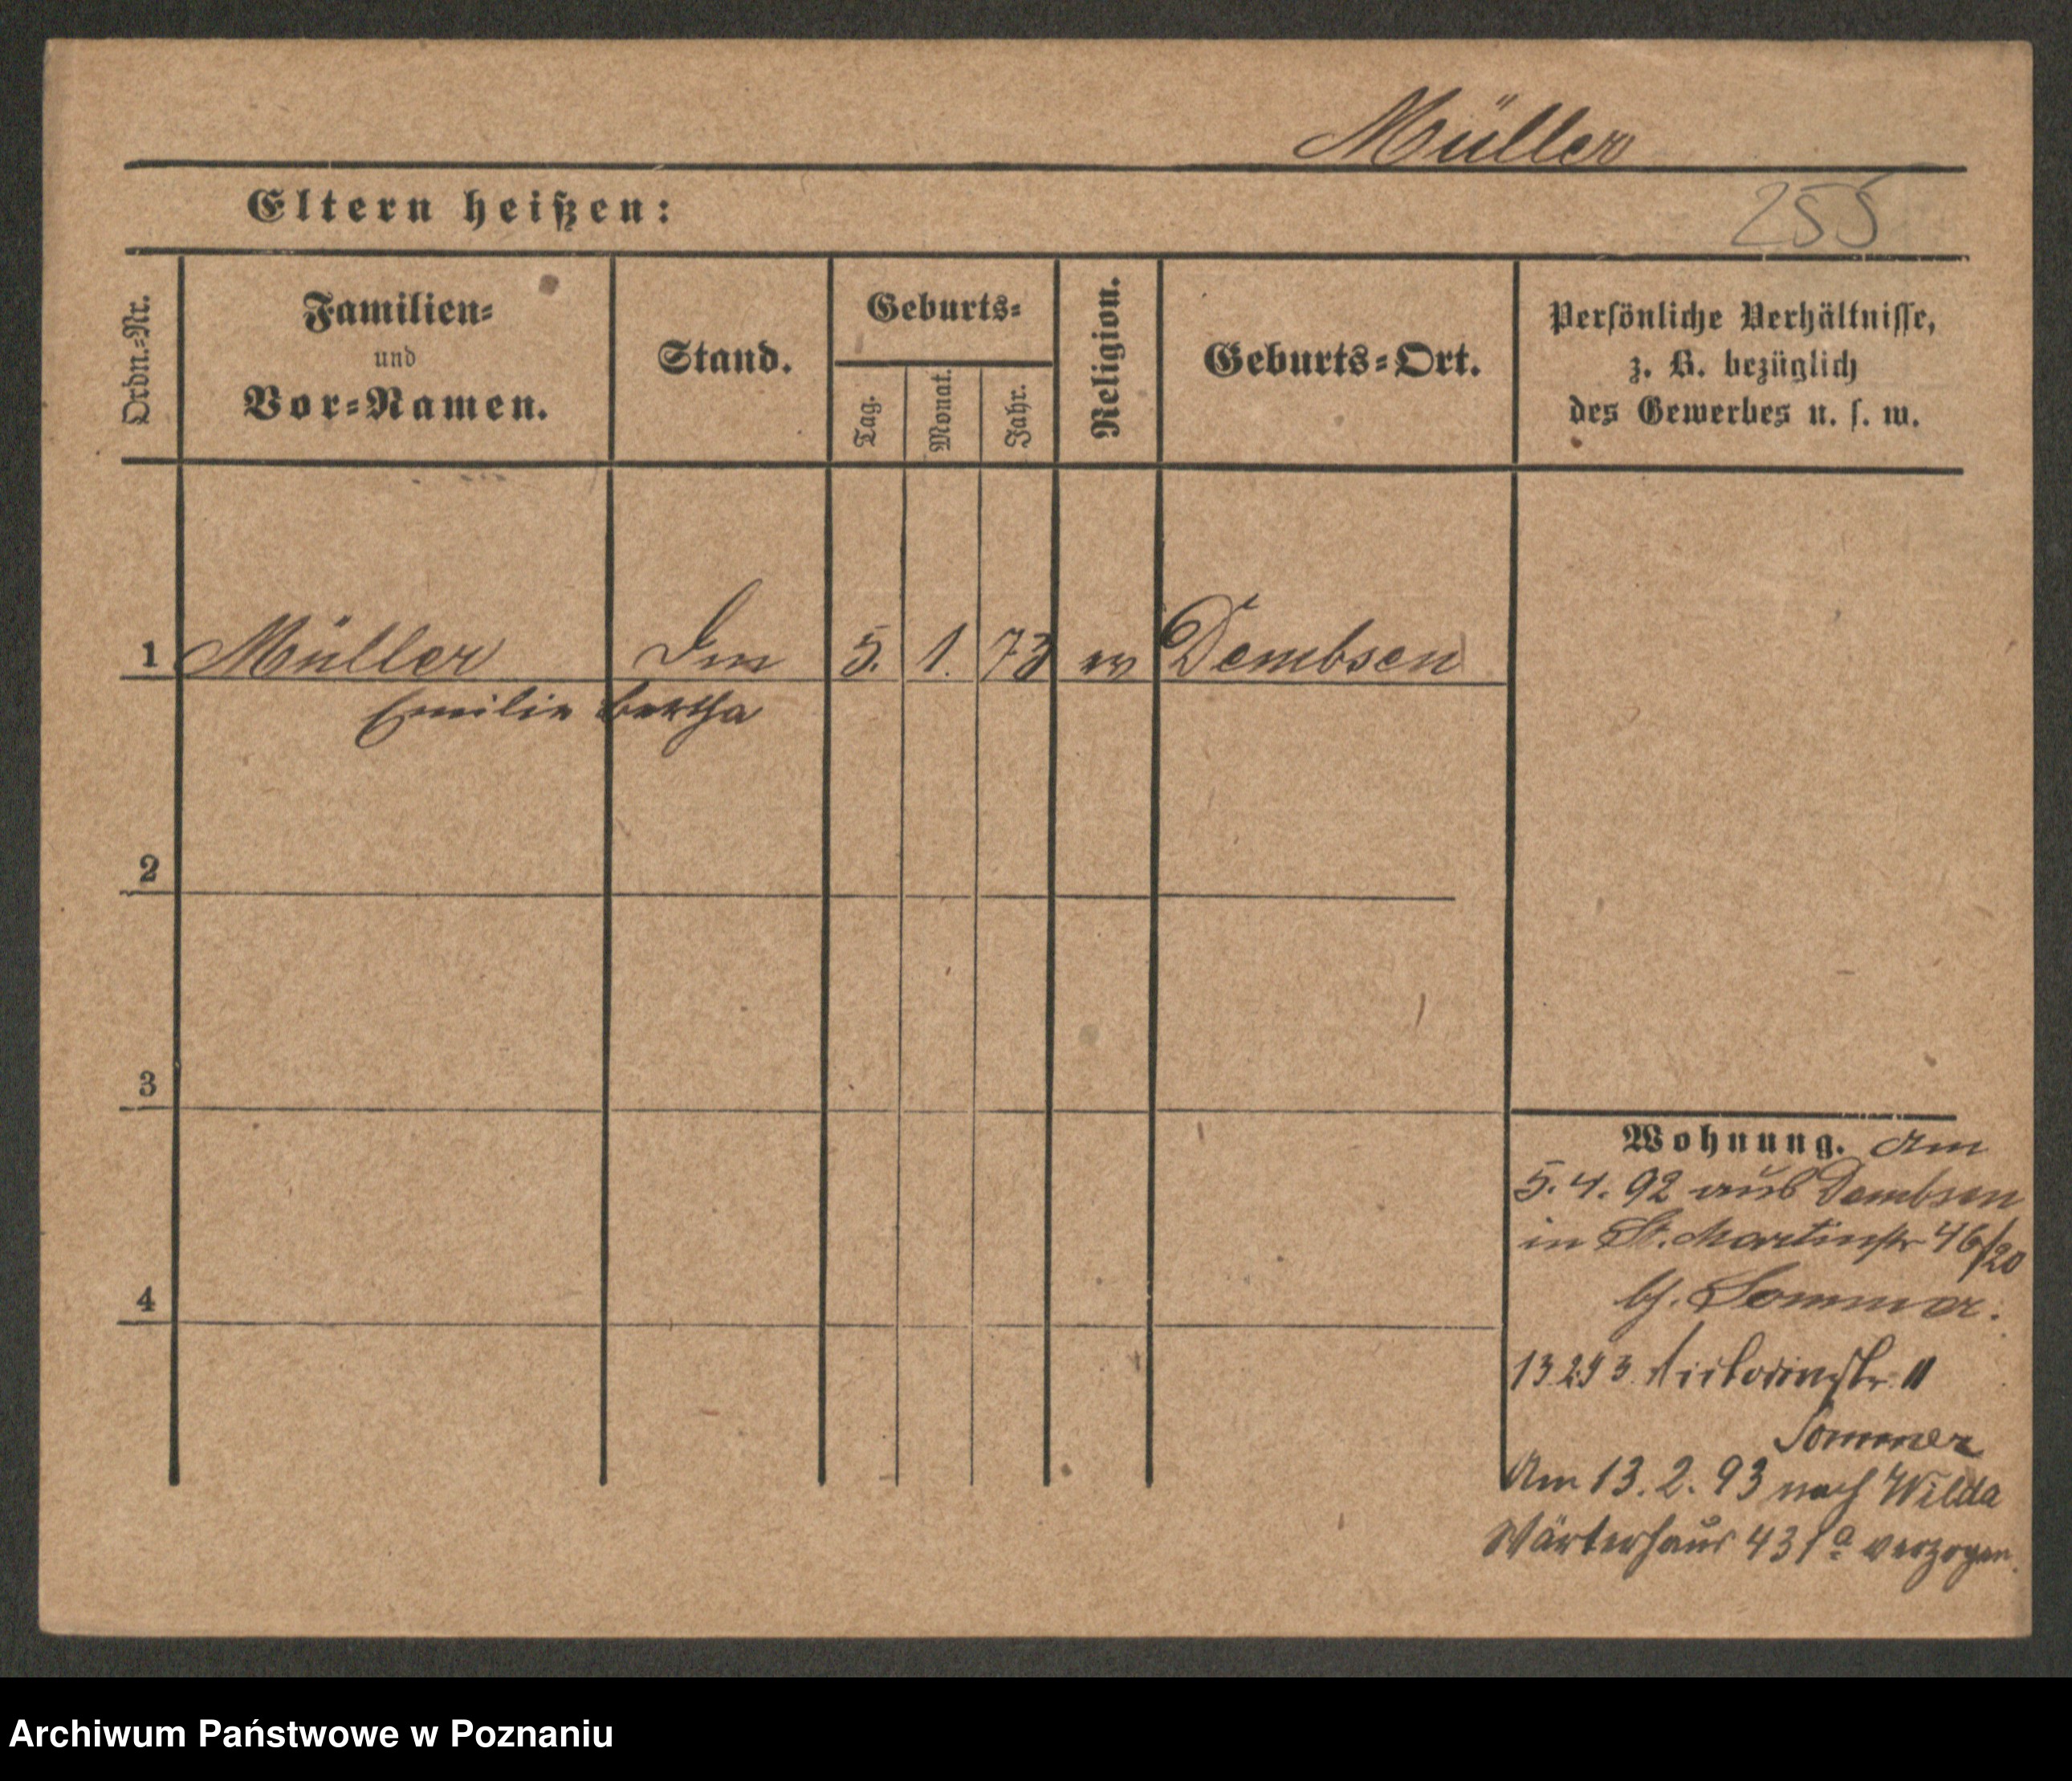 Müller
Eltern heißen:
255
Ordn.-Nr.
Familien-
und
Vor-Namen.
Stand.
Geburts-
Tag.
Monat.
Jahr.
Religion.
Geburts-Ort.
Persönliche Verhältnisse,
z. B. bezüglich
des Gewerbes u. s. w.
1 Müller 5. 1. 73 ev Dembsen
Emilie Bertha
2
3
4
Wohnung. Am
5. 4. 92 aus Dembsen
in St. Martinstr 46/20
bj. Sommer.
13 2 93 Victoriastr. 11
Sommer
Am 13. 2. 93 nach Wilda
Wärterhaus 431a verzogen.
Archiwum Państwowe w Poznaniu